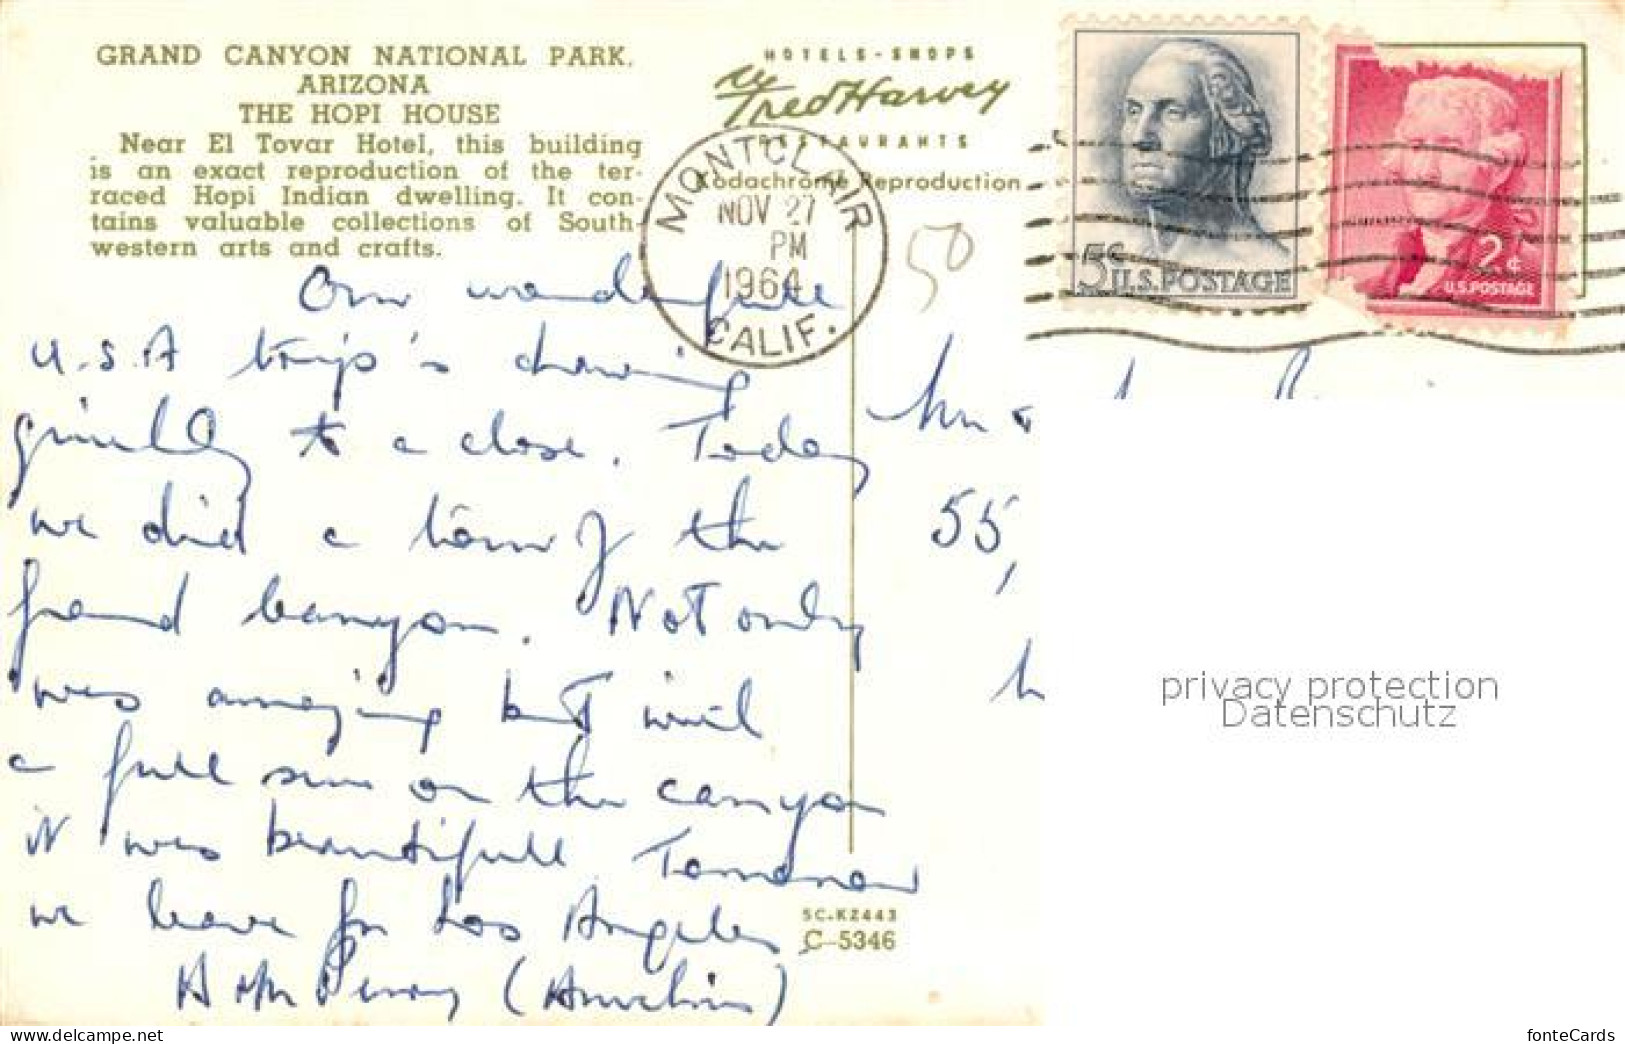 GRAND CANYON NATIONAL PARK,
ARIZONA
THE HOPI HOUSE
Near El Tovar Hotel, this building
is an exact reproduction of the ter-
raced Hopi Indian dwelling. It con-
tains valuable collections of South-
western arts and crafts.
HOTELS-SHOPS
Fred Harvey
RESTAURANTS
Kodachrome Reproduction
MONTCLAIR
NOV 27
PM
1964
CALIF.
50
5¢
U.S. POSTAGE
2¢
U.S. POSTAGE
Our wonderfull
U.S.A trip's drawing
to a close. Today
we did a tour of the
grand canyon. Not only
was amazing but with
a full sun on the canyon
it was beautifull Tomorrow
we leave for Los Angeles
55,
SC-K2443
C-5346
privacy protection
Datenschutz
www.delcampe.net
fonteCards